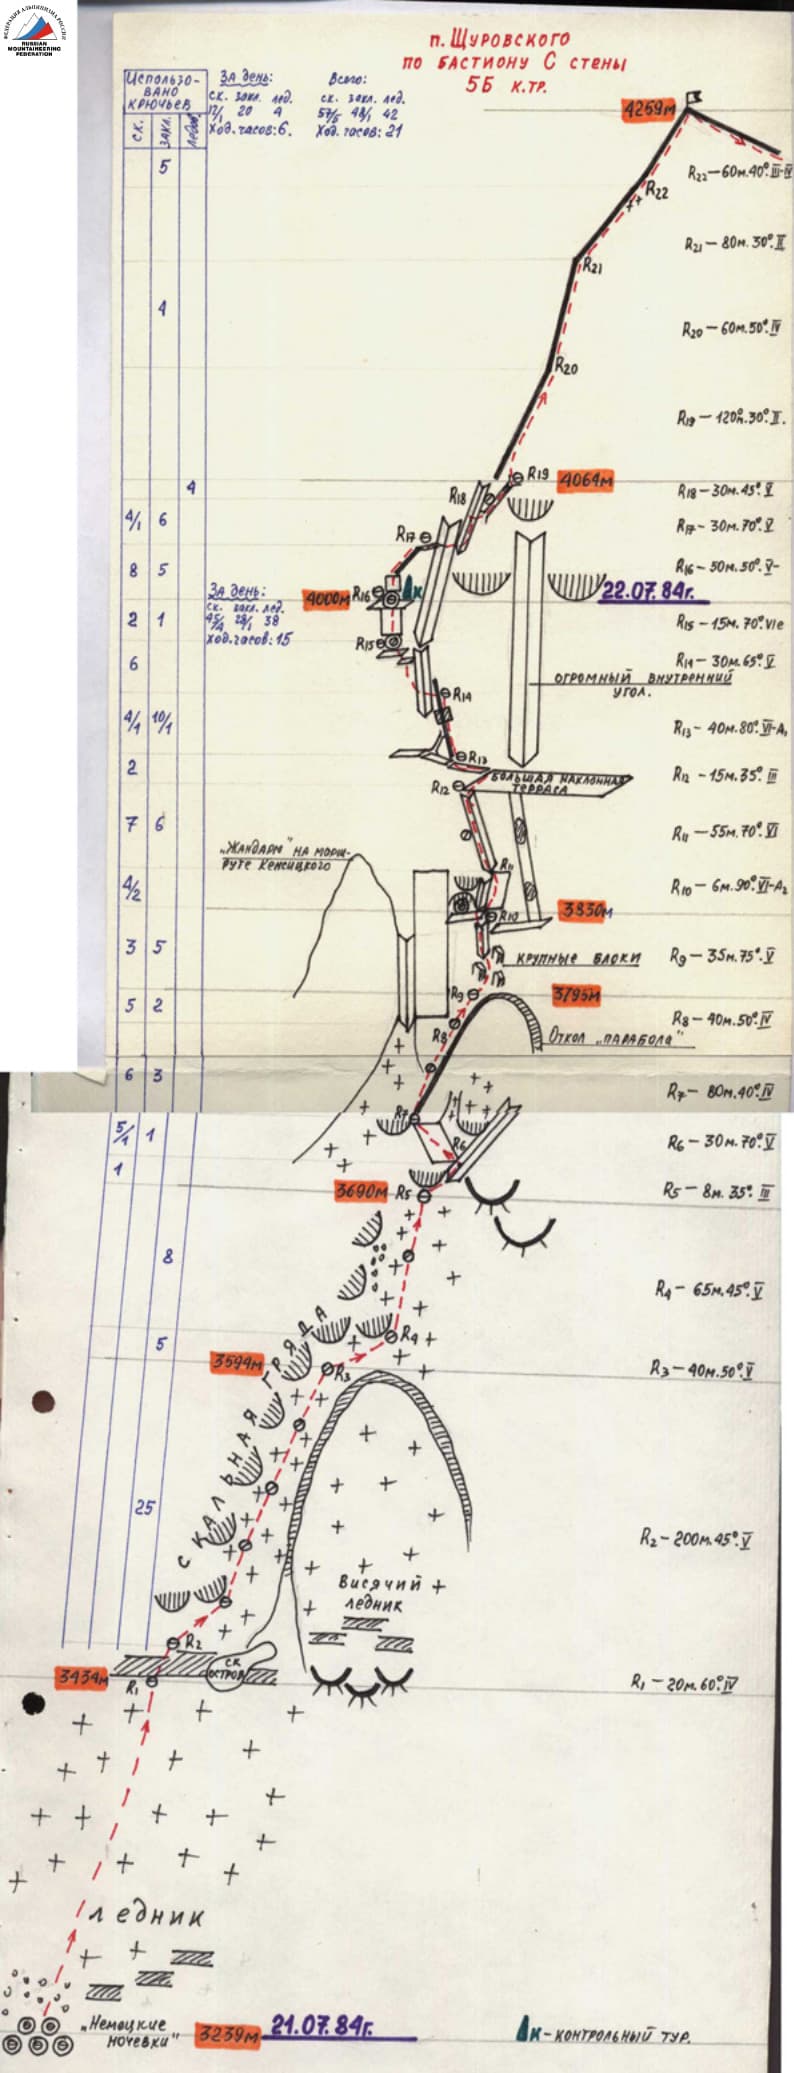 ФЕДЕРАЦИЯ АЛЬПИНИЗМА РОССИИ
RUSSIAN
MOUNTAINEERING
FEDERATION
п. Щуровского
по бастиону С стены
5Б к.тр.
Использо-
вано
крючьев
ск.
закл.
ледов.
За день:
ск. закл. лед.
17/1 20 4
Ход. часов: 6.
Всего:
ск. закл. лед.
57/5 48/1 42
Ход. часов: 21
4259м
5
R22
R22 — 60м. 40°. III-IV
R21
R21 — 80м. 30°. II
4
R20 — 60м. 50°. IV
R20
R19 — 120м. 30°. II.
4
R19
4064м
R18
R18 — 30м. 45°. V
4/1 6
R17
R17 — 30м. 70°. V
8 5
R16 — 50м. 50°. V-
За день:
ск. закл. лед.
28/1 38
Ход. часов: 15
4000м
R16
к
22.07.84г.
2 1
R15
R15 — 15м. 70°. VIе
6
R14 — 30м. 65°. V
огромный внутренний
угол.
R14
4/1 10/1
R13 — 40м. 80°. VI-A1
2
R13
R12
Большая наклонная
терраса
R12 — 15м. 35°. III
7 6
R11 — 55м. 70°. VI
„Жандарм" на марш-
руте Кенсицкого
R11
4/2
R10 — 6м. 90°. VI-A2
R10
3830м
3 5
крупные блоки
R9 — 35м. 75°. V
R9
3795м
5 2
R8
Откол „парабола"
R8 — 40м. 50°. IV
6 3
R7 — 80м. 40°. IV
R7
5/1 1
R6
R6 — 30м. 70°. V
1
3690м
R5
R5 — 8м. 35°. III
8
R4 — 65м. 45°. V
5
R4
3594м
R3
R3 — 40м. 50°. V
скальная гряда
25
R2 — 200м. 45°. V
Висячий
ледник
R2
ск.
остров
3434м
R1
R1 — 20м. 60°. IV
ледник
„Немецкие
ночевки"
3239м
21.07.84г.
к - контрольный тур.